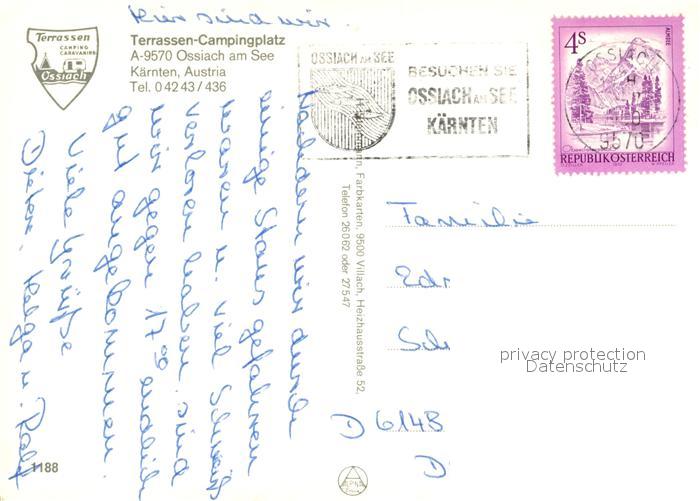 Hier sind wir.
Terrassen
CAMPING
CARAVANING
Ossiach
Terrassen-Campingplatz
A-9570 Ossiach am See
Kärnten, Austria
Tel. 0 42 43 / 436
OSSIACH AM SEE
BESUCHEN SIE
OSSIACH AM SEE
KÄRNTEN
4S
ALMSEE
OSSIACH
9570
REPUBLIK ÖSTERREICH
Nachdem wir durch
einige Staus gefahren
waren u. viel Schweiß
verloren haben, sind
wir gegen 17 00 endlich
gut angekommen.
Viele Grüße
Dieter, Helga u. Ralf
Farbkarten, 9500 Villach, Heizhausstraße 52,
Telefon 26062 oder 27547
Familie
Edr
Sch
privacy protection
Datenschutz
D 6148
D
1188